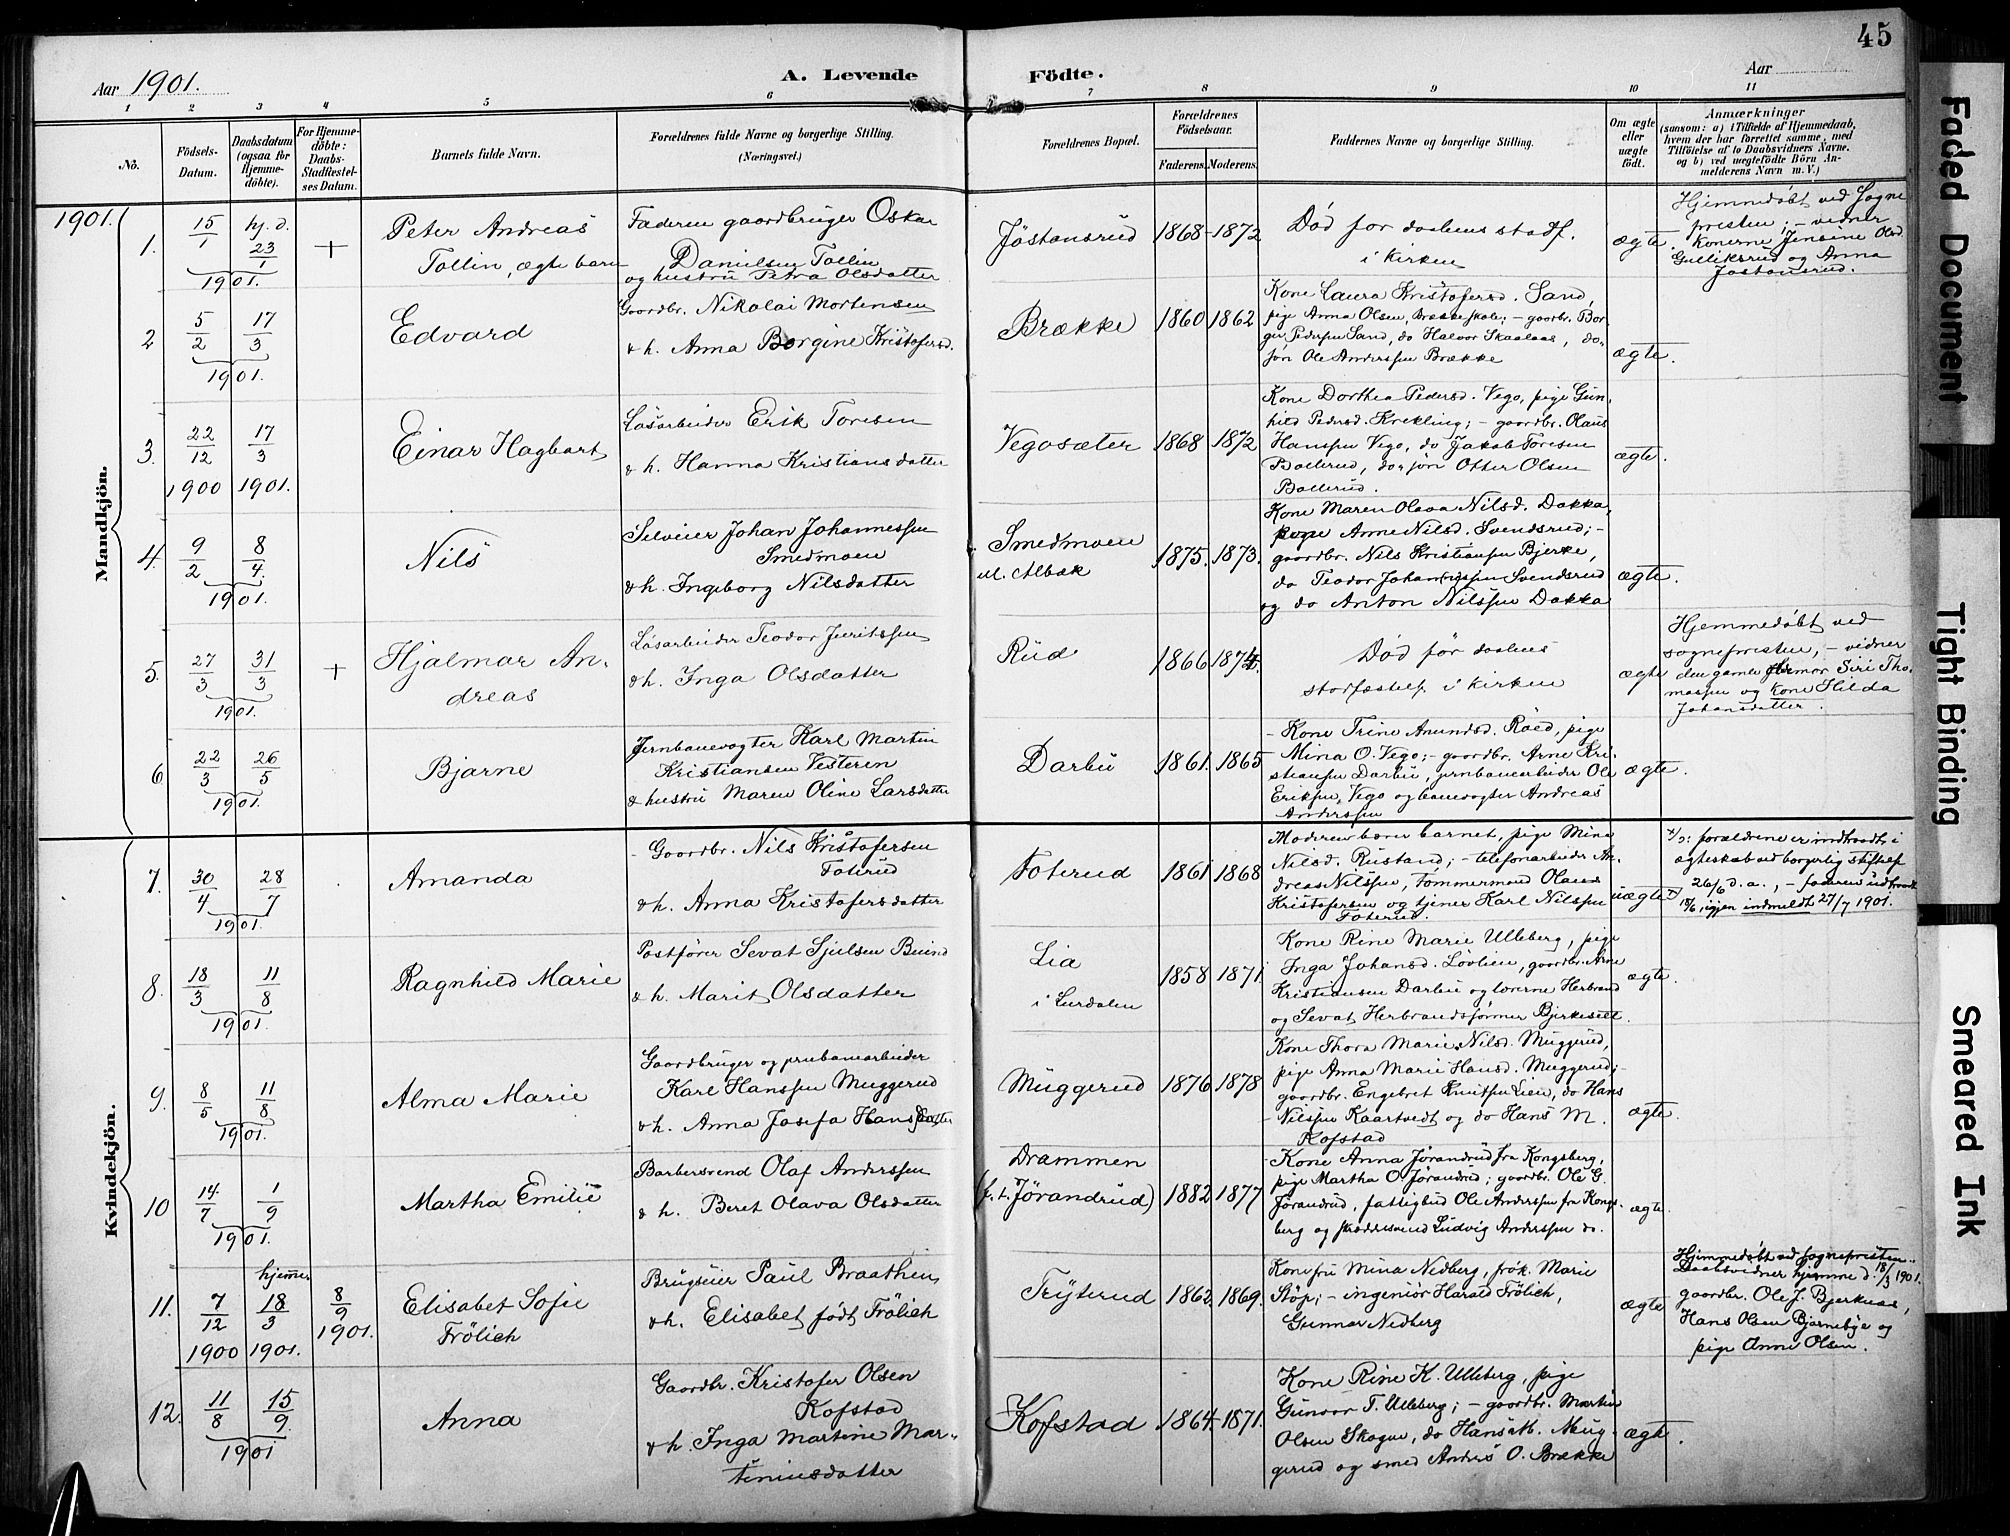 45
Aar 1901.
A. Levende Födte.
Aar
1 2 3 4 5 6 7 8 9 10 11
No.
Födsels-Datum.
Daabsdatum (ogsaa for Hjemme-döbte).
For Hjemme-döbte: Daabs-Stadfæstel-ses Datum.
Barnets fulde Navn.
Forældrenes fulde Navne og borgerlige Stilling.
(Næringsvei.)
Forældrenes Bopæl.
Forældrenes Födselsaar.
Faderens. Moderens.
Faddernes Navne og borgerlige Stilling.
Om ægte eller uægte født.
Anmærkninger
(saasom: a) i Tilfælde af Hjemmedaab,
hvem der har forrettet samme, med
Tilföielse af to Daabsvidners Navne.
og b) ved uægtefödte Börn An-
melderens Navn m. V.)
1901.
Mandkjön.
1. 15/1 1901. hj. d. 23/1 +
Peter Andreas
Tollin, ægte barn
Faderen gaardbruger Oskar
Danielsen Tollin
og hustru Petra Olsdatter
Jøstansrud 1868 1872
Død før daabens stadf.
i kirken
ægte.
Hjemmedøbt ved Sogne
presten; - vidner
konerne Jensine Olsd.
Gulliksrud og Anna
Jøstansrud.
2 5/2 17/3 1901.
Edvard
Gaardbr. Nikolai Mortensen
& h. Anna Borgine Kristofersd.
Brække 1860 1862
Kone Laura Kristofersd. Sand,
pige Anna Olsen, Brække skole; - gaardbr. Bor-
ger Pedersen Sand, do Halvor Skaalaas, do-
søn Ole Anderssen Brække
ægte.
3. 22/12 1900 17/3 1901.
Einar Hagbart
Løsarbeider Erik Toresen
& h. Hanna Kristiansdatter
Vegosæter 1868 1872
Kone Dorthea Pedersd. Vego, pige Gun-
hild Pedersd. Krekling; - gaardbr. Olaus
Hanssen Vego, do Jakob Toresen
Bollerud, do søn Otter Olsen
Bollerud.
ægte.
4. 9/2 8/4. 1901.
Nils
Selveier Johan Johannessen
Smedmoen
& h. Ingeborg Nilsdatter
Smedmoen
u. Albæk
1875. 1873.
Kone Maren Olava Nilsd. Dokka,
pige Anne Nilsd. Svendsrud; -
gaardbr. Nils Kristiansen Bjerke,
do Teodor Johannessen Svendsrud
og do Anton Nilssen Dokka
ægte.
5. 27/3 31/3 1901. +
Hjalmar An-
dreas
Løsarbeider Teodor
& h. Inga Olsdatter
Rud 1866 1874.
Død før daabens
stadfæstelse i kirken
ægte
Hjemmedøbt ved
sognepresten, - vidner
den gamle Siri Tho-
massen og kone Hilda
Johansdatter.
6 22/3 26/5 1901.
Bjarne
Jernbanevogter Karl Martin
Kristiansen Vesteren
& hustru Maren Oline Larsdatter
Darbu 1861. 1865
- Kone Trine Amundsd. Røed, pige
Mina O. Vego; - gaardbr. Arne Kri-
stiansen Darbu, jernbanearbeider Ole
Eriksen, Vego og banevogter Andreas
Anderssen
ægte.
Kvindekjön.
7. 30/4 28/7 1901.
Amanda
- Gaardbr. Nils Kristofersen
Foterud
& h. Anna Kristofersdatter
Foterud 1861 1868
Moderen bærer barnet, pige Mina
Nilsd. Rustand; - telefonarbeider An-
dreas Nilssen, Tømmermand Olaus
Kristofersen og tjener Karl Nilssen
Foterud.
uægte x)
x/ɔ: forældrene er indtraadt i
ægteskab ved borgerlig stiftelse
26/6 d. a., - faderen udtraadt
15/6, igjen indmeldt 27/7 1901.
8. 18/3 11/8 1901.
Ragnhild Marie
Postfører Sevat Bruind
& h. Marit Olsdatter
Lia
i Lurdalen
1858 1871
Kone Rine Marie Ulleberg, pige
Inga Johansd. Løvlien, gaardbr. Arne
Kristiansen Darbu og lærerne Herbrand
og Sevat Herbrandsønner Bjerkeseth.
ægte.
9. 8/5 11/8 1901.
Alma Marie
Gaardbruger og jernbanearbeider
Karl Hanssen Muggerud
& h. Anna Josefa Hansdatter
Muggerud 1876 1878
Kone Thora Marie Nilsd. Muggerud,
pige Anna Marie Hansd. Muggerud; -
gaardbr. Engebret Knutsen Lien, do Hans
Nilssen Kaartvedt og do Hans M.
Kofstad
ægte.
10 14/7 1/9 1901.
Martha Emilie
Barbersvend Olaf Anderssen
& h. Beret Olava Olsdatter
Drammen
(f. t. Jørandrud) 1882 1877
Kone Anna Jørandrud fra Kongsberg,
pige Martha O. Jørandrud; gaardbr. Ole G.
Jørandrud, fattiglud Ole Anderssen fra Kongs-
berg og skræddersvend Ludvig Anderssen do.
ægte.
11. 7/12 1900 hjemme 18/3 1901. 8/9 1901.
Elisabet Sofie
Frölich
Brugseier Paul Braathen
& h. Elisabet født Frölich
Tryterud 1862 1869.
Kone fru Mina Nedberg, frøk. Marie
Støp; - ingeniør Harald Frölich,
Gunnar Nedberg
ægte
Hjemmedøbt ved sognepresten.
Daabsvidner hjemme d. 18/3 1901.
gaardbr. Ole J. Bjerknæs,
Hans Olsen Bjørnebye og
pige Anne Olsen.
12. 11/8 15/9. 1901
Anna
Gaardbr. Kristofer Olsen
Kofstad
& h. Inga Martine Mar-
tiniusdatter
Kofstad 1864. 1871.
Kone Rine K. Ulleberg, pige
Gunvor T. Ulleberg; - gaardbr. Martin
Olsen Skogen, do Hans M. Mug-
gerud og smed Anders O. Brække
ægte.
Faded Document
Tight Binding
Smeared Ink